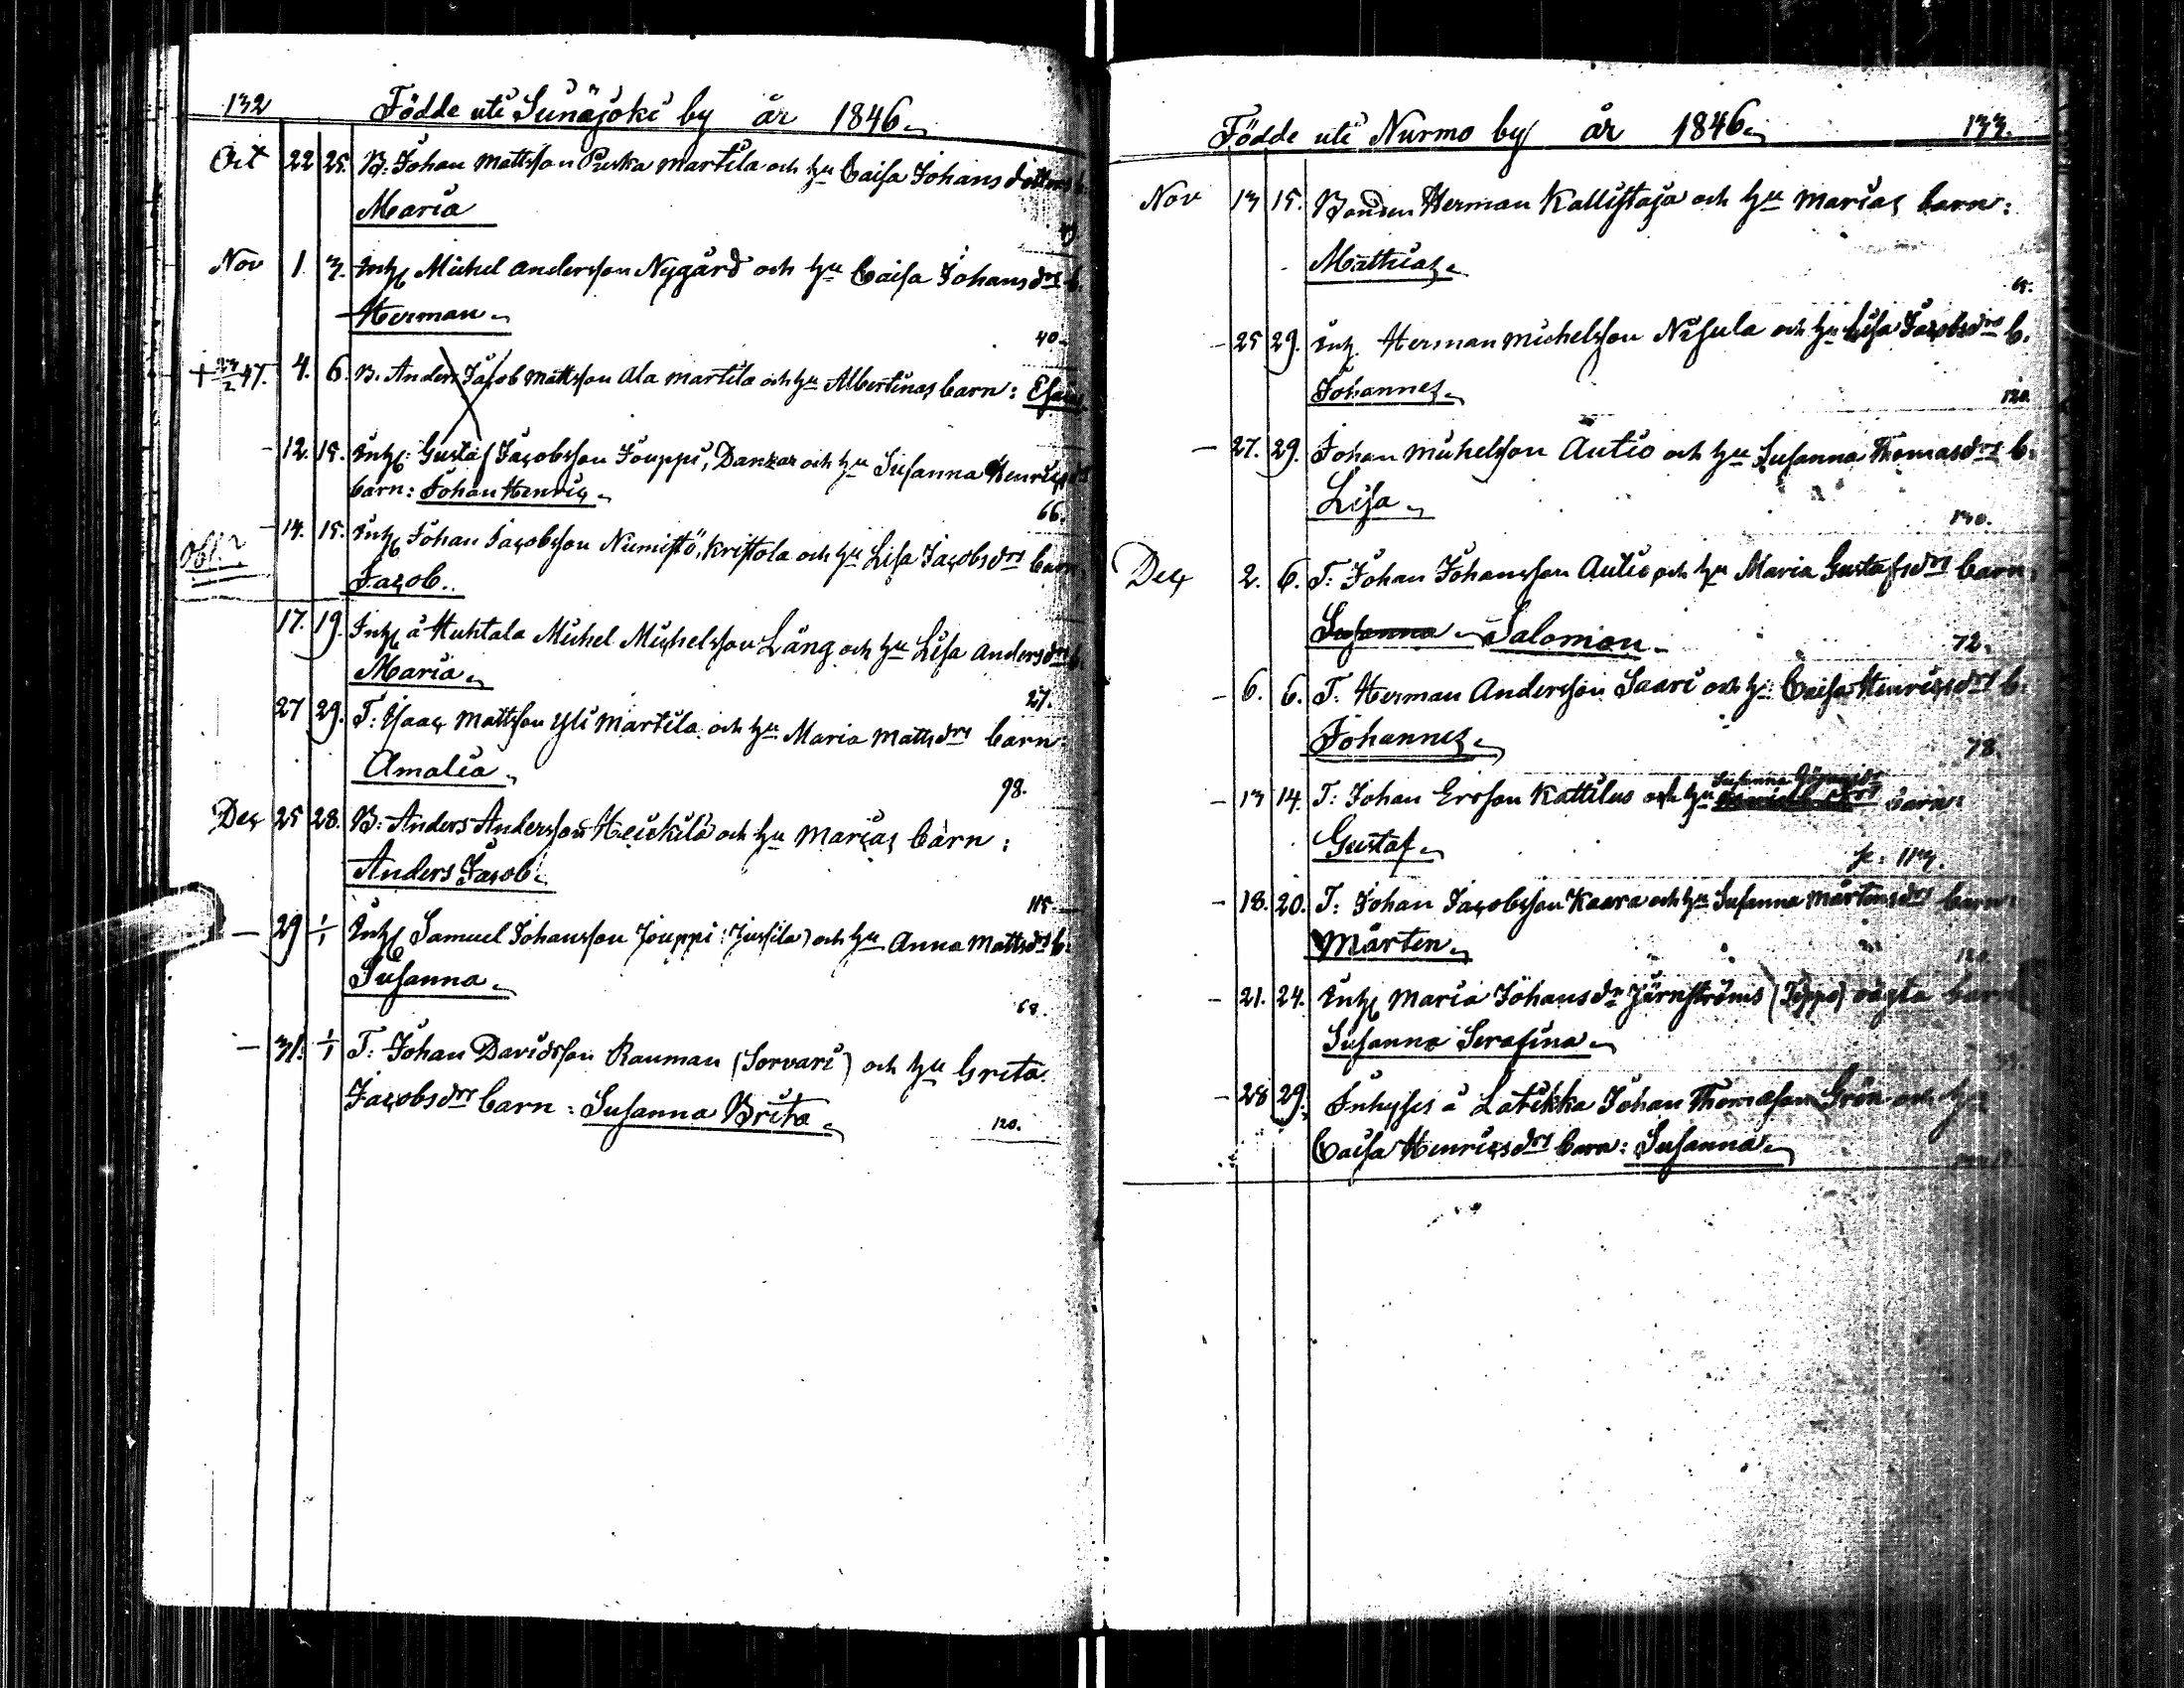 132 Födde uti Sunäjoki by år 1846.
Oct 22 25. B: Johan Mattsson Martila och hu Caisa Johans dotters b.
Maria
Nov 1. 3. Inh Michel Andersson Nygård och hu Caisa Johans drs b.
Herman.
40.
+ 23/2 47. 4. 6. B. Anders Jacob Mattsson Ala Martila och hu Albertinas barn:
- 12. 15. Inh: Gustaf Jacobsson Jouppi, och hu Susanna
barn: Johan Henric.
66.
Obs. 14. 15. Inh Johan Jacobsson Niemistö, Kristola och hu Lisa Jacobs drs barn
Jacob.
17. 19. Inh å Huhtala Michel Michelsson Lång och hu Lisa Anders drs b.
Maria.
27.
27 29. T: Isaac Mattsson Yli Martila och hu Maria Matts drs barn:
Amalia.
98.
Dec 25 28. B: Anders Andersson Heickilä och hu Marias barn:
Anders Jacob.
115.
- 29 1/1 Inh Samuel Johansson Jouppi (Jussila) och hu Anna Matts drs b.
Susanna.
68.
- 31. 1/1 T: Johan Davidsson Rauman (Sorvari) och hu Greta
Jacobs drs barn: Susanna Brita.
120.
Födde uti Nurmo by år 1846. 133.
Nov 13 15. Bonden Herman Kallistaja och hu Marias barn:
Mathias.
65.
- 25 29. Inh. Herman Michelsson Nisula och hu Lisa Jacobs drs b.
Johannes.
120.
- 27. 29. Johan Michelsson Autio och hu Susanna Thomas drs b.
Lisa.
130.
Dec 2. 6. T: Johan Johansson Autio och hu Maria Gustafs drs barn:
Susanna Salomon.
72.
- 6. 6. T. Herman Andersson Saari och hu Caisa Henrics drs b.
Johannes.
78.
Susanna
- 13 14. T: Johan Ersson Kattilus och hu barn:
Gustaf.
113.
- 18. 20. T: Johan Jacobsson Kaara och hu Susanna Mårtens drs barn:
Mårten.
120
- 21. 24. Inh Maria Johans dr Järnströms (Seppo) oägta barn
Susanna Serafina.
- 28 29. Inhyses å Latikka Johan Thomasson Grön och hu
Caisa Henrics drs barn: Susanna.